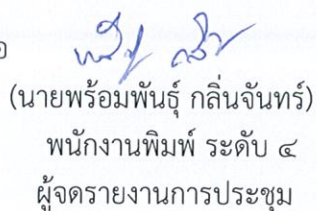 (นายพร้อมพันธุ์ กลิ่นจันทร์)
พนักงานพิมพ์ ระดับ ๔
ผู้จดรายงานการประชุม